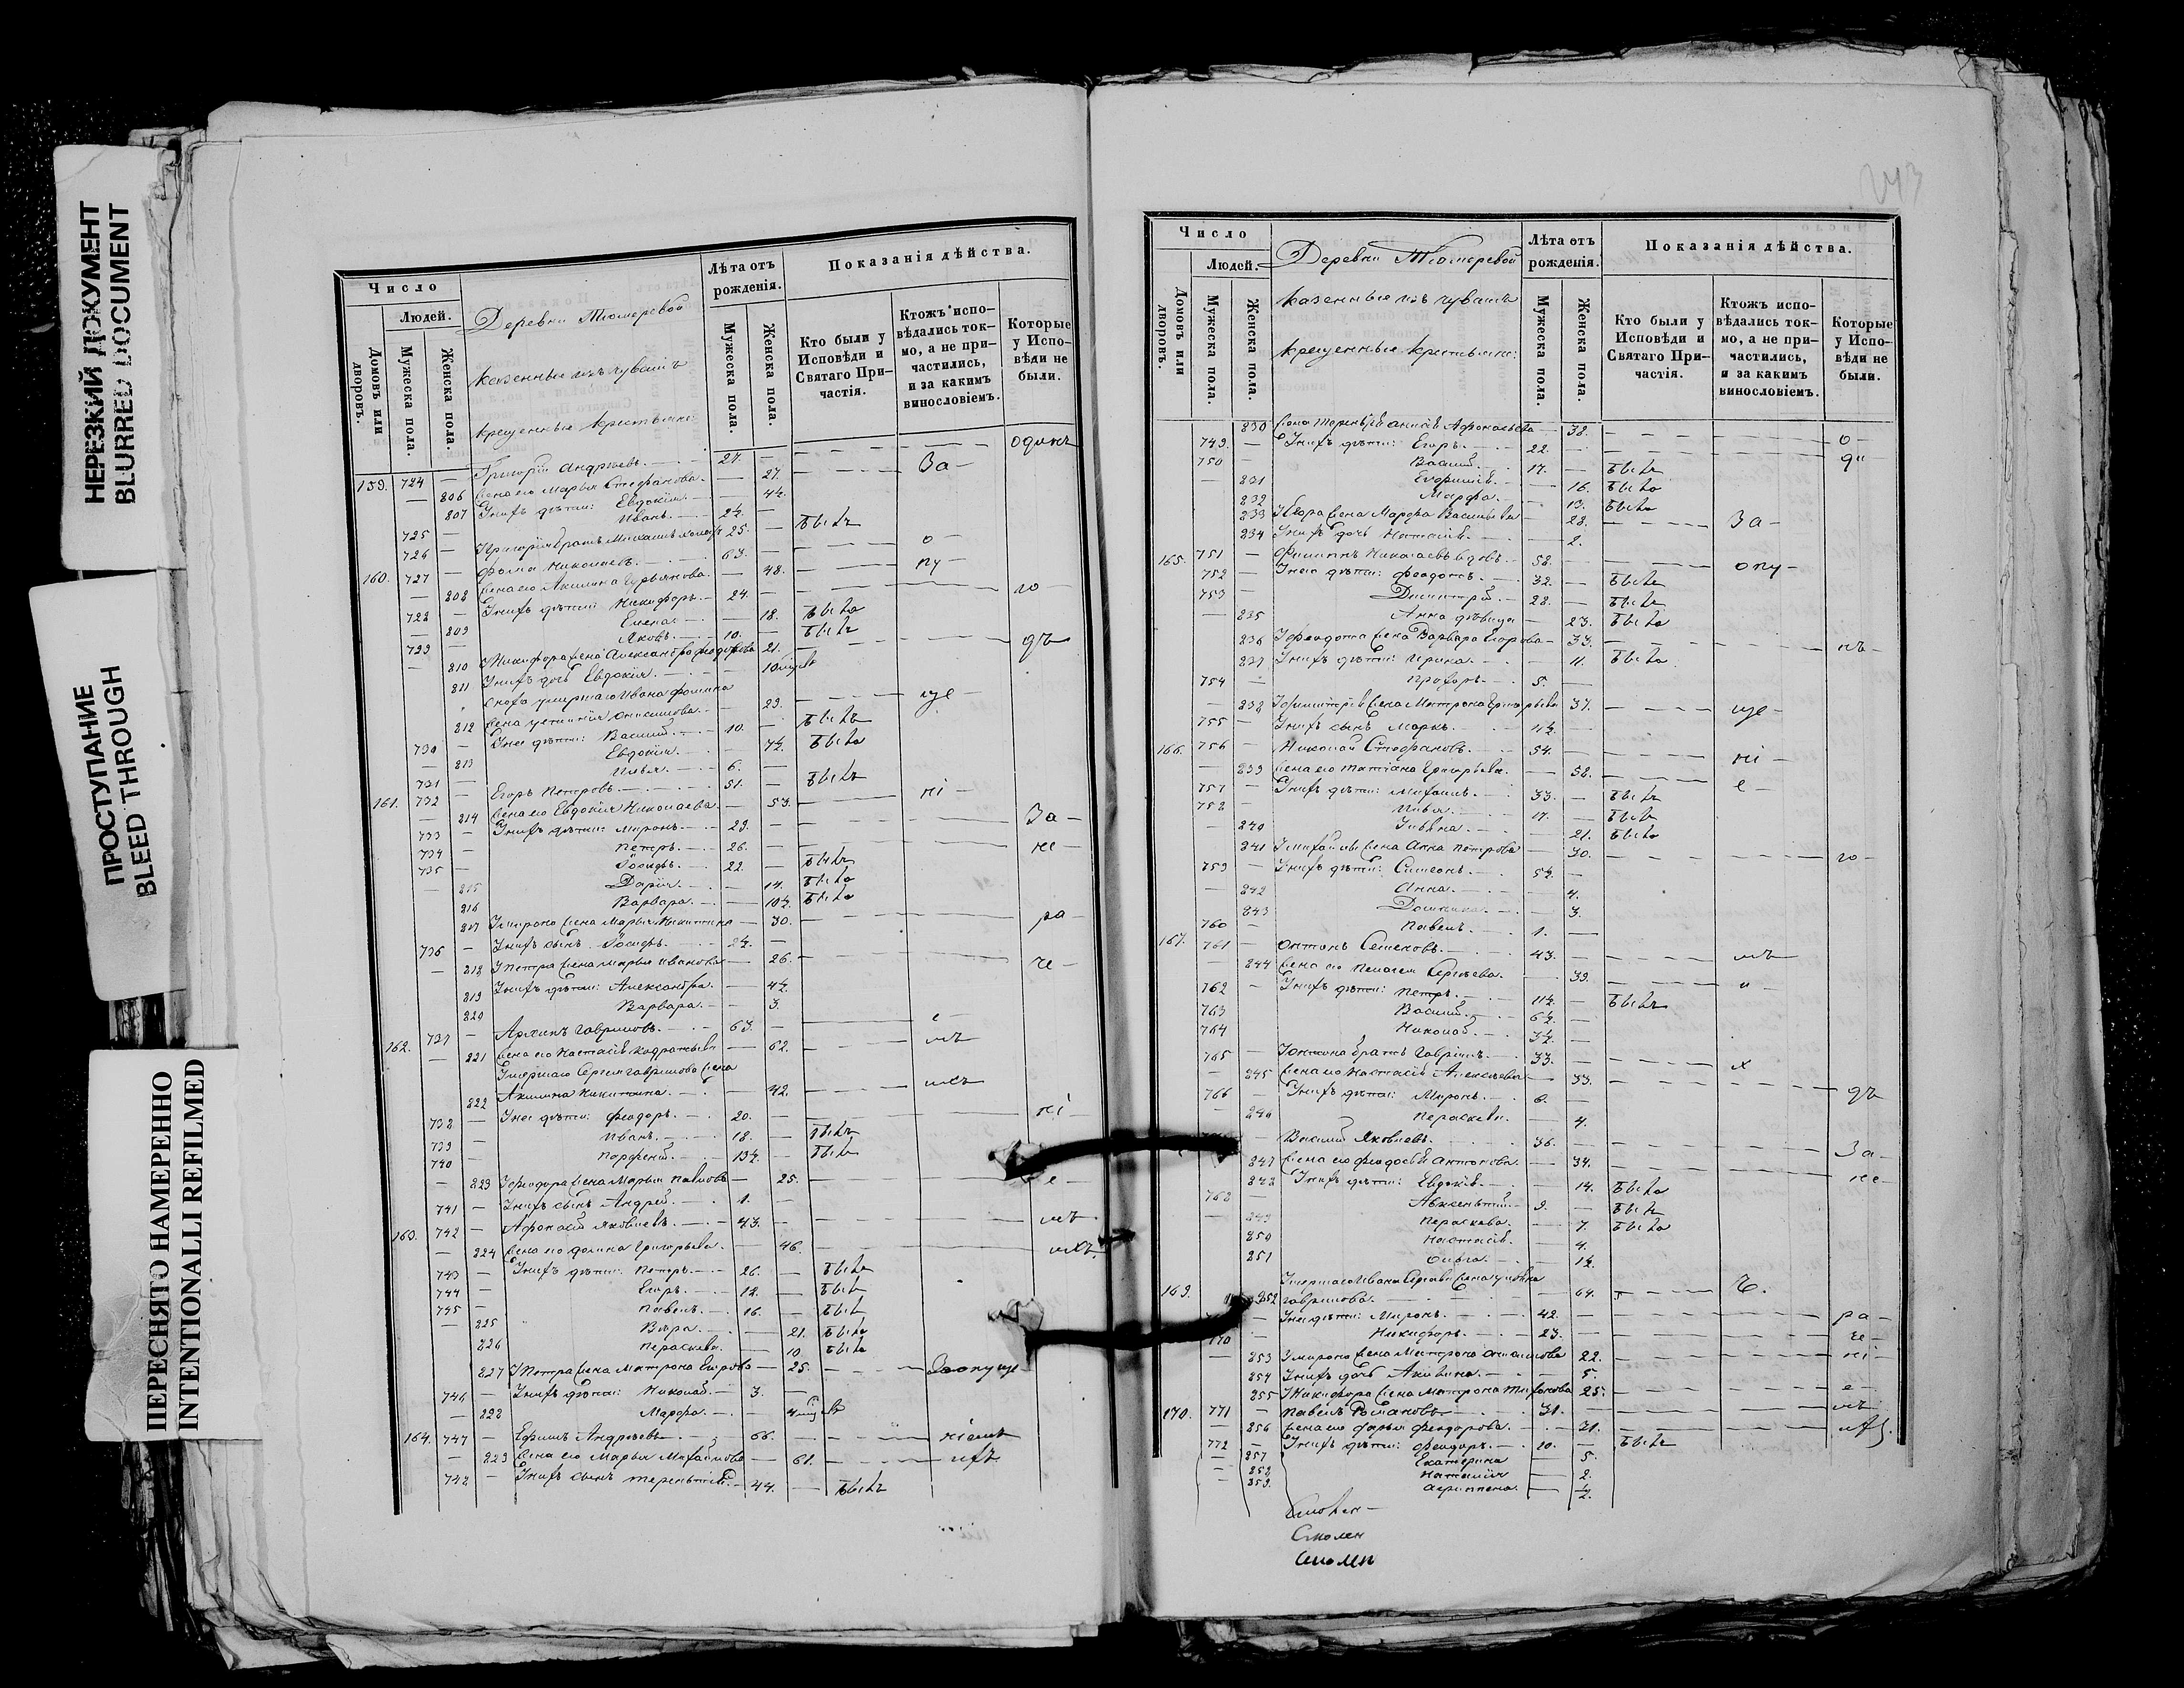 НЕРЕЗКИЙ ДОКУМЕНТ
BLURRED DOCUMENT
ПРОСТУПАНИЕ
BLEED THROUGH
ПЕРЕСНЯТО НАМЕРЕННО
INTENTIONALLI REFILMED
Число
Людей.
Домовъ или дворовъ.
Мужеска пола
Женска пола
Деревни Тюмеревой
казенные изъ чувашъ
крещенные крестьяне:
Лѣта отъ рожденія.
Мужеска пола.
Женска пола.
Показанія дѣйства.
Кто были у Исповѣди и Святаго Причастія.
Ктожъ исповѣдались токмо, а не причастились, и за какимъ винословіемъ.
Которые у Исповѣди не были.
159. 724 — Григорій Андреевъ. 27. — одинъ
— 806 жена его Марья Стефанова. — 27. За-
807 У нихъ дѣти: Евдокія. — 4½.
725 — Иванъ. 2½. —
726 — Григорія братъ Михаилъ 25. — былъ
160. 727 — Фома Николаевъ. 63. — о-
— 808 жена его Акилина Гурьянова. — 48. пу-
728 — У нихъ дѣти: Никифоръ. 24. го
— 809 Елена. — 18. была
729 — Яковъ. 10. — былъ
— 810 Никифора жена Александра Федорова 21. дъ
811 У нихъ дочь Евдокія. 10
умершаго Ивана Фомина
812 жена Онисимова. — 29. ще-
730 — У нея дѣти: Василій. 10. — былъ
— 813 Евдокія. — 7½. была
731 — Илья. 6. —
161. 732 — Егоръ Петровъ. 51. — былъ
— 814 жена его Евдокія Николаева. — 53. ні-
733 — У нихъ дѣти: Миронъ. 29. — За-
734 — Петръ. 26. — не-
735 — Іосифъ. 22. — былъ
— 815 Дарія. — 14. была
816 Варвара. — 10½. была
817 У Мирона жена Марья Никитина — 30. ра-
736 — У нихъ сынъ Іосифъ. 2½. —
— 818 У Петра жена Марья Иванова — 26. че-
819 У нихъ дѣти: Александра. — 4½.
820 Варвара. — 3.
162. 737 — Архипъ Гавриловъ. 63. — е-
— 821 жена его Настасія — 62. мъ
Умершаго Сергея Гаврилова жена
822 Акилина Никитина. — 42.
738 — У нея дѣти: Феодоръ. 20. — ні-
739 — Иванъ. 18. — былъ
740 — Парфеній. 13½. — былъ
— 823 У Феодора жена Марья Павлова — 25. е-
741 — У нихъ сынъ Андрей. 1. —
163. 742 — Афонасій Яковлевъ. 43. — мъ
— 824 жена его Домна Григорьева. — 46.
743 — У нихъ дѣти: Петръ. 26. — былъ
744 — Егоръ. 18. — былъ
745 — Павелъ. 16. — былъ
— 825 Вѣра. — 21. была
826 Параскева. — 10. была
827 У Петра жена Матрона Егорова — 25. За опуще-
746 — У нихъ дѣти: Николай. 3. —
— 828 Марфа. — 4
164. 747 — Ефимъ Андреевъ. 66. — ніемъ
— 829 жена его Марья Михайлова — 61. ихъ
748 — У нихъ сынъ Терентій. 44. — былъ
243
Число
Людей.
Домовъ или дворовъ.
Мужеска пола.
Женска пола.
Деревни Тюмеревой
казенные изъ чувашъ
крещенные крестьяне:
Лѣта отъ рожденія.
Мужеска пола.
Женска пола.
Показанія дѣйства.
Кто были у Исповѣди и Святаго Причастія.
Ктожъ исповѣдались токмо, а не причастились, и за какимъ винословіемъ.
Которые у Исповѣди не были.
830 жена Терентія Анисія Афонасьева — 38. о-
749. — У нихъ дѣти: Егоръ. 22. — ди
750 — Василій. 17. — былъ
— 831 — 16. была
832 Марфа. — 13. была
833 У Егора жена Марфа Васильева — 28. За-
834 У нихъ дочь Наталія. — 2.
165. 751 — Филиппъ Николаевъ вдовъ. 58. опу-
752 — У него дѣти: Феодотъ. 32. — былъ
753 — Димитрій. 28. — былъ
— 835 Анна дѣвица — 23. была
836 У Феодота жена Варвара Егорова — 33. нъ-
837 У нихъ дѣти: Ирина. — 11. была
754 — Прохоръ. 5. —
— 838 У Димитрія жена Матрона Григорьева 37. ще-
755 — У нихъ сынъ Маркъ. 1½. —
166. 756 — Николай Стефановъ. 54. — ні-
— 839 жена его Татіана Григорьева. — 58. е-
757 — У нихъ дѣти: Михаилъ. 33. — былъ
758 — Илья. 17. — былъ
— 840 Ульяна. — 21. была
841 У Михайлы жена Анна Петрова — 30. го-
759 — У нихъ дѣти: Симеонъ. 5½. —
— 842 Анна. — 4.
843 Домника. — 3.
760 — Павелъ. 1. —
167. 761 — Антонъ Семеновъ. 43. — мъ
— 844 жена его Пелагея Сергеева. — 39. и-
762 — У нихъ дѣти: Петръ. 11½. — былъ
763 Василій. 6½. —
764 Николай. 3½. —
765 — У Антона братъ Гавріилъ. 33. — х
— 845 жена его Настасія Алексеева — 33. дъ
766 — У нихъ дѣти: Миронъ. 6. —
— 846 Параскева. — 4.
— Василій Яковлевъ. 36. — За-
847 жена его Феодосія Антонова. — 34. не-
848 У нихъ дѣти: Евдокія. — 14. была
768 — Авксентій. 9. — былъ
— 849 Параскева. — 7. была
850 Настасія. — 4.
851 Ольга. — 1½.
Умершаго Ивана жена Ульяна
169. 852 Гаврилова. — 64. ъ.
— У нея дѣти: Миронъ. 42. — ра-
770 — Никифоръ. 23. — че-
853 У Мирона жена Матрона 22. ні-
854 У нихъ дочь Акилина. — 5.
855 У Никифора жена Матрона Тихонова 25. е-
170. 771 — Павелъ Романовъ 31. — мъ
— 856 жена его Дарья Феодорова. — 31.
772 — У нихъ дѣти: Феодоръ. 10. — былъ
— 857 Екатерина — 5.
— 858 Наталія — 2.
— 859. Агриппена. — ½.